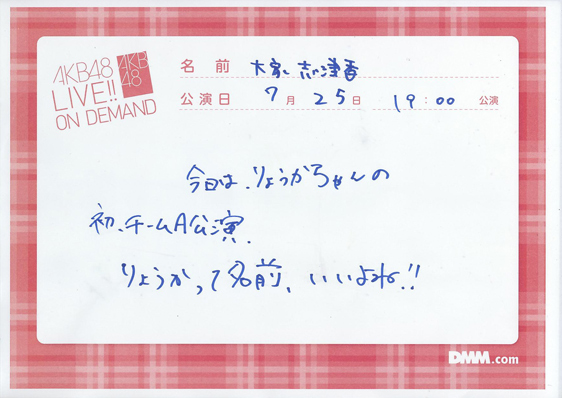 AKB48
LIVE!!
ON DEMAND
AKB
48
名前 大家志津香
公演日 7月25日 19:00 公演
今日は、りょうかちゃんの
初、チームA公演、
りょうかって名前、いいよね!!
DMM.com